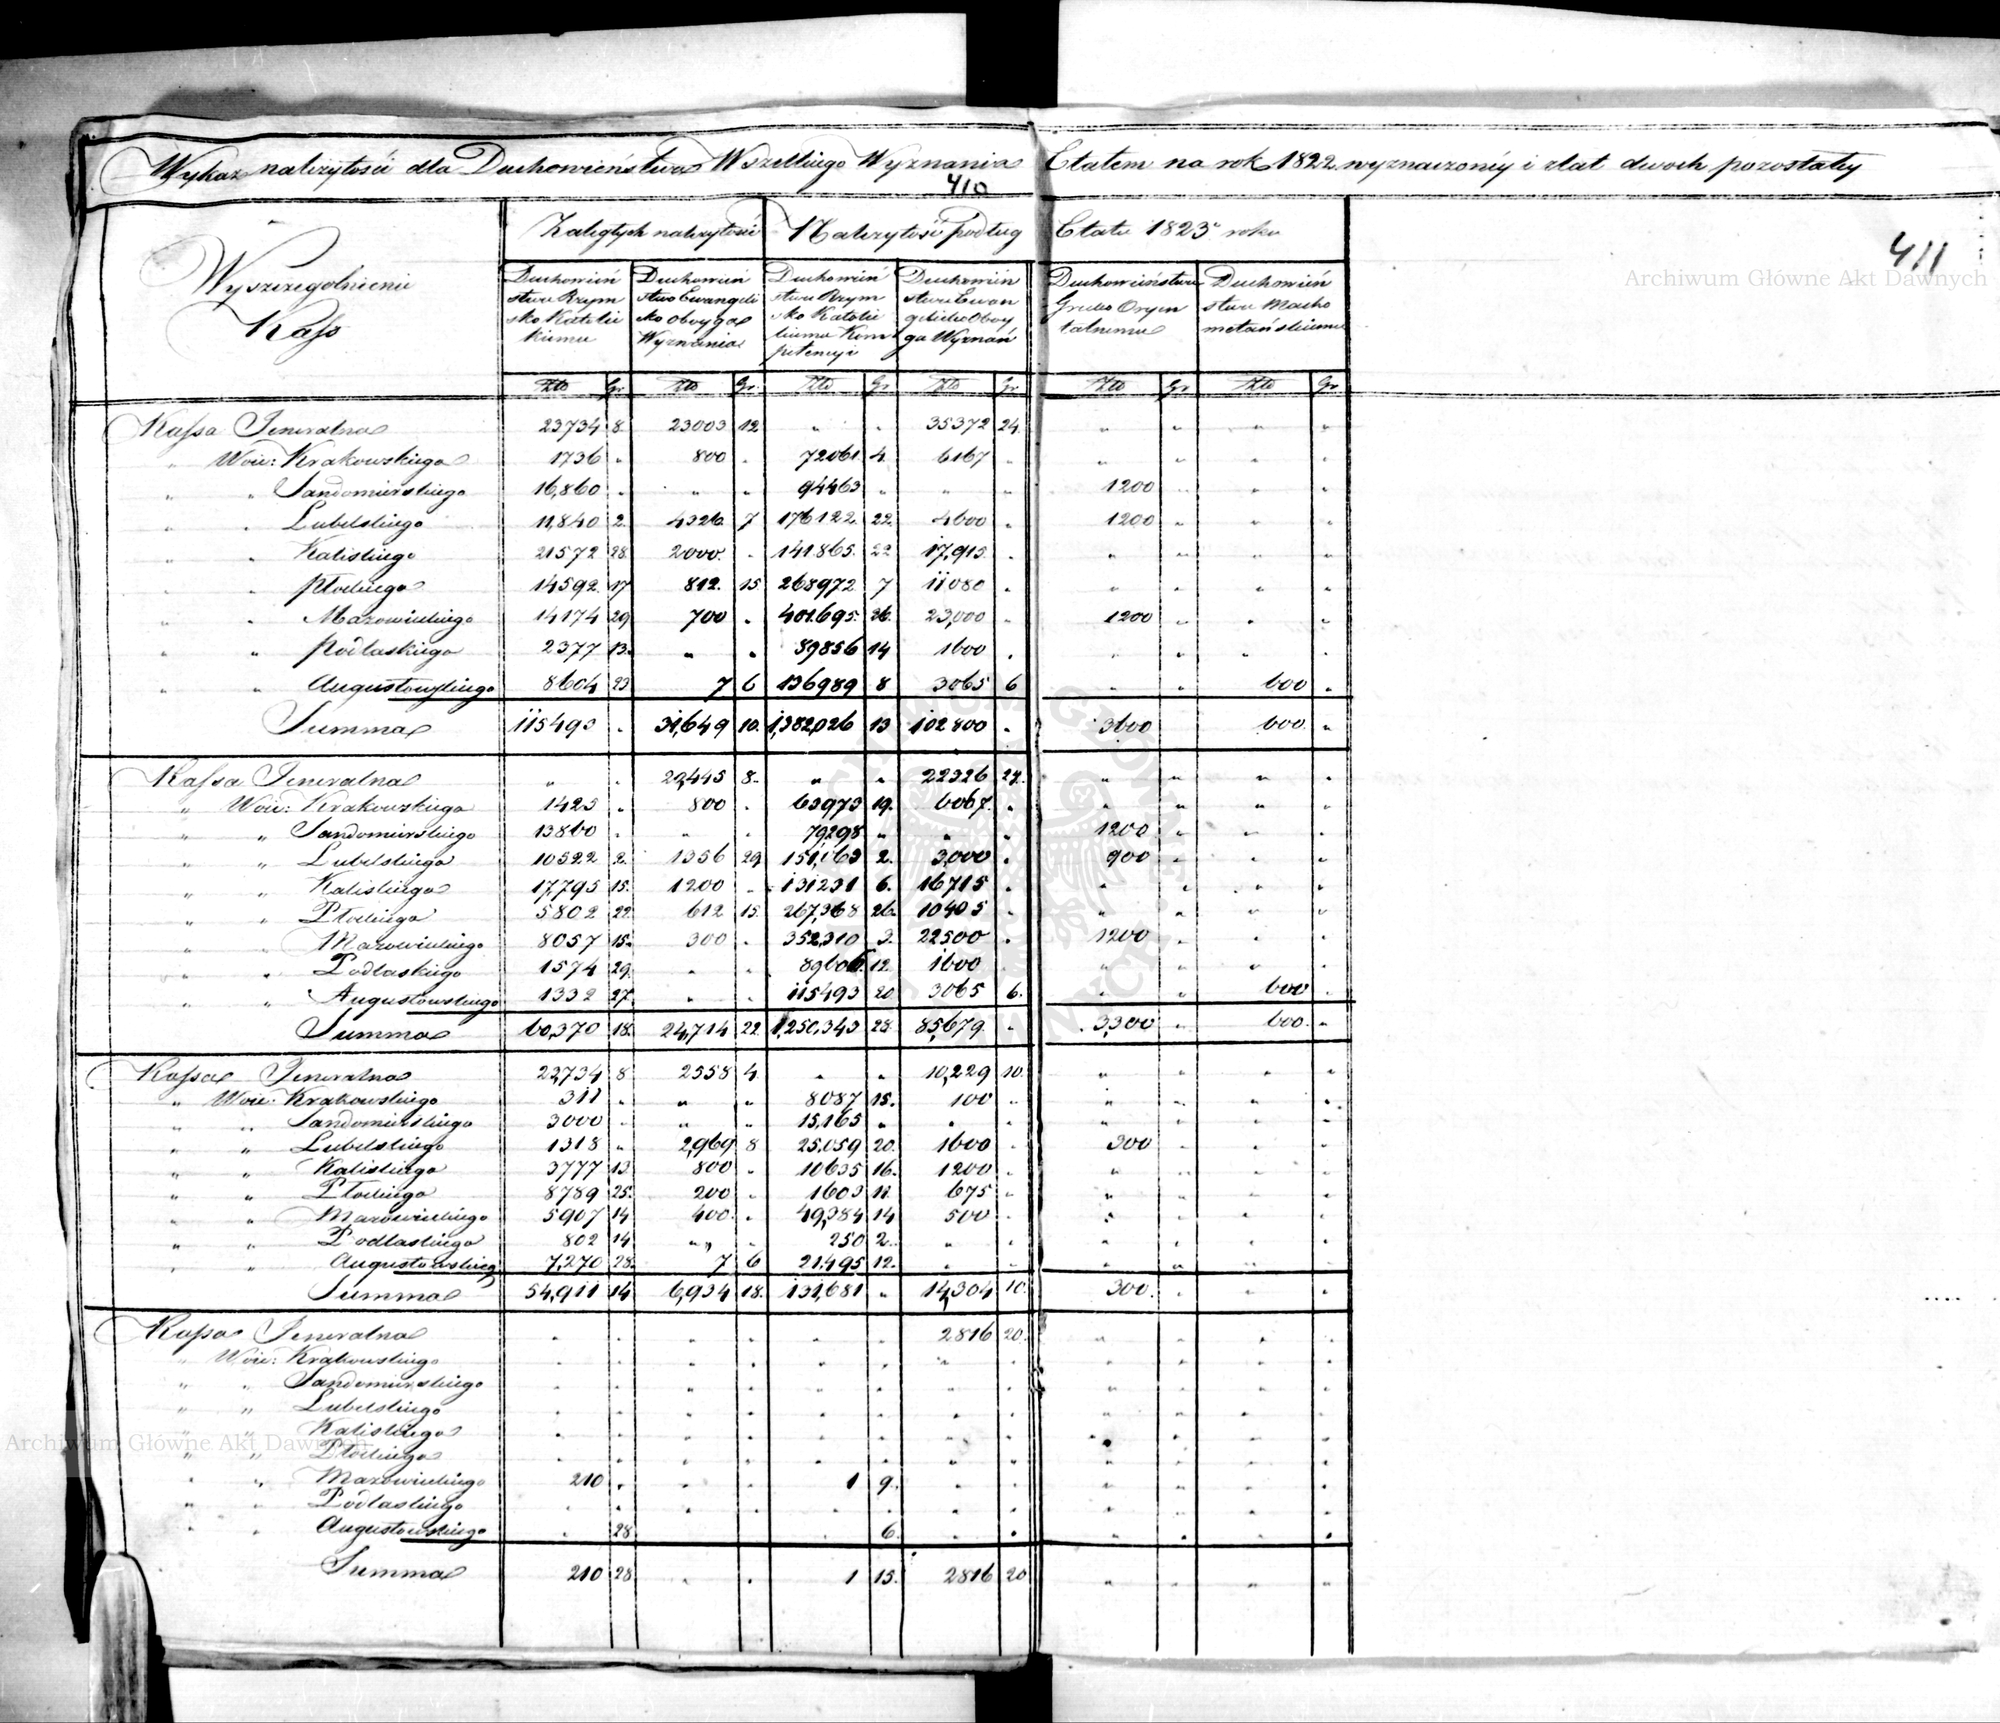 Wykaz należytości dla Duchowieństwa Wszelkiego Wyznania Etatem na rok 1822 wyznaczonéy i z lat dwoch pozostałey
410
411
Archiwum Główne Akt Dawnych
Zaległych należytości Należytość podług Etatu 1823 roku
Wyszczegolnienie
Kass
Duchowień stwu Rzym sko Katolic kiemu
Duchowień stwo Ewangelic ko oboyga Wyznania
Duchowień stwu Rzym sko Katolic kiemu Kom petencyi
Duchowień stwu Ewan gelicko Oboy ga Wyznań
Duchowieństwu Greko Oryen talnemu
Duchowień stwu Macho metańskiemu
Złto Gr. Złto Gr. Złto Gr. Złto Gr. Złto Gr. Złto Gr.
Kassa Jeneralna 23734 8. 23003 12. " " 35372 24. " " " "
" Woie: Krakowskiego 1736 " 800 " 72061 4. 6167 " " " " "
" " Sandomirskiego 16,860 " " " 94463 " " " 1200 " " "
" " Lubelskiego 11,840 2. 4326 7 176122 22. 4600 " 1200 " " "
" " Kaliskiego 21572 28. 2000. " 141865. 22 17,915. " " " " "
" " Płockiego 14592. 17 812. 15 268972 7 11080 " " " " "
" " Mazowieckiego 14174 29 700 " 401.695. 26. 23,000 " 1200 " " "
" " Podlaskiego 2377 13. " " 89856 14 1600 " " " " "
" " Augustowskiego 8604 23 7 6 136989 8 3065 6 " " 600 "
Summa 115490 " 31,649 10. 1,382,026 13 102800 " 3600 600. "
Kassa Jeneralna " " 20,445 8. " " 22326 24. " " " "
" Woie: Krakowskiego 1425 " 800 " 63973 19. 6067. " " " " "
" " Sandomirskiego 13860 " " " 79298 " " " 1200 " " "
" " Lubelskiego 10522 2. 1356 29 151,063 2. 3,000 " 900 " " "
" " Kaliskiego 17,795 15. 1200 " 131231 6. 16715 " " " " "
" " Płockiego 5802 22. 612 15. 267,368 26. 10405 " " " " "
" " Mazowieckiego 8057 15. 300 " 352,310 3. 22500 " 1200 " " "
" " Podlaskiego 1574 29. " " 89606. 12. 1600 " " " "
" " Augustowskiego 1332 27. " " 115493 20. 3065 6. " " 600 "
Summa 60,370 18. 24,714 22. 1,250,343 28. 85,679. " 3,300 " 600. "
Kassa Jeneralna 23,734 8 2558 4. " " 10,229 10. " " " "
" Woie: Krakowskiego 311 " " " 8087 15. 100 " " " " "
" " Sandomirskiego 3000 " " " 15,165 " " " " " " "
" " Lubelskiego 1318 " 2,969 8 25,059 20. 1600 " 300 " " "
" " Kaliskiego 3777 13. 800 " 10635 16. 1200 " " " " "
" " Płockiego 8789 25. 200 " 1603 11. 675 " " " " "
" " Mazowieckiego 5907 14 400. " 49,384 14 500 " " " " "
" " Podlaskiego 802 14 " " 250 2. " " " " " "
" " Augustowskiego 7,270 28. 7 6 21,495 12. " " " " " "
Summa 54,911 14 6,934 18. 131,681 " 14,304 10. 300. " " "
Kassa Jeneralna " " " " " " 2816 20. " " " "
" Woie: Krakowskiego " " " " " " " " " " " "
" " Sandomirskiego " " " " " " " " " " " "
" " Lubelskiego " " " " " " " " " " " "
" " Kaliskiego " " " " " " " " " " " "
Archiwum Główne Akt Dawnych
" " Płockiego " " " " " " " " " " " "
" " Mazowieckiego 210 " " " 1 9. " " " " " "
" " Podlaskiego " " " " " " " " " " " "
" " Augustowskiego " 28 " 6. " " " " " "
Summa 210 28 " " 1 15. 2816 20 " " " "